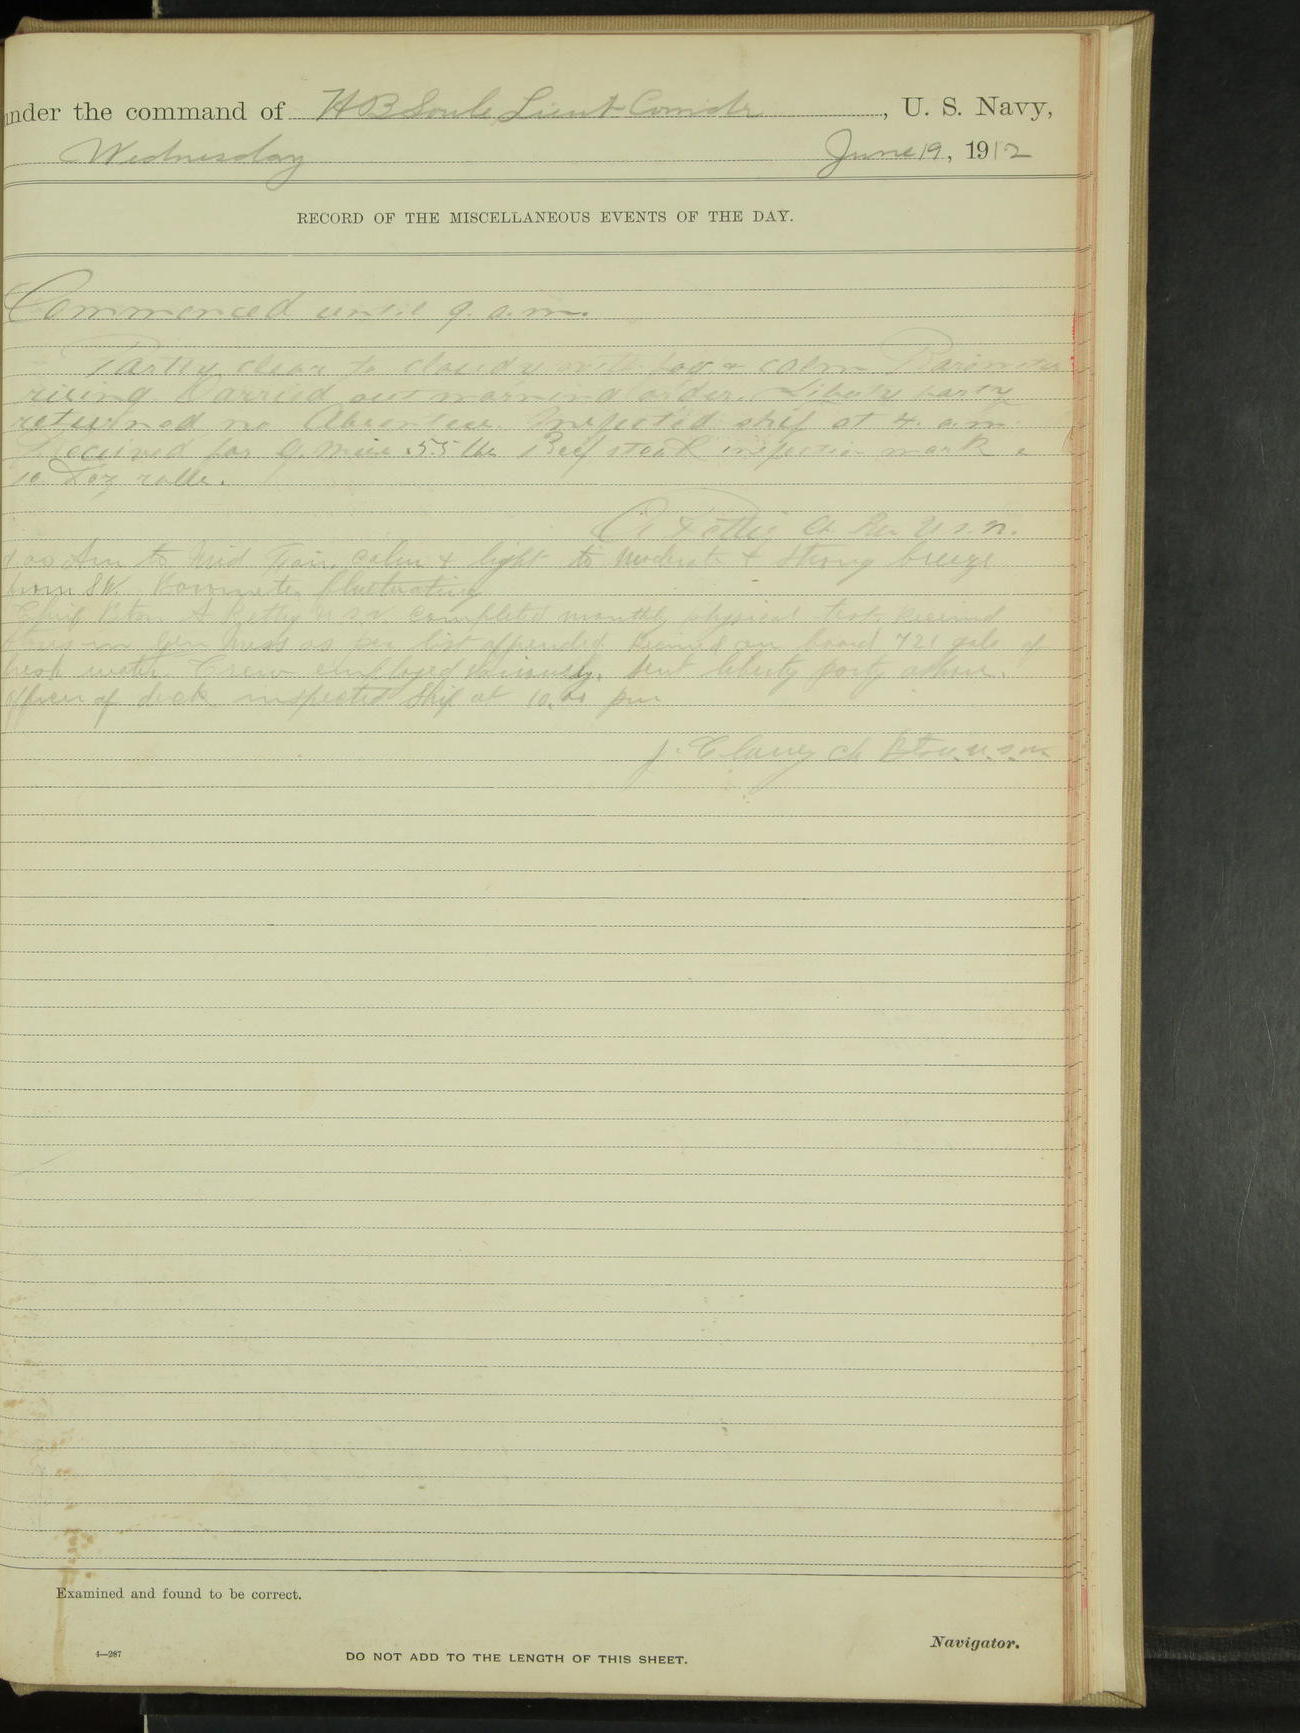 under the command of H B Soule Lieut Comdr, U. S. Navy,
Wednesday June 19, 1912
RECORD OF THE MISCELLANEOUS EVENTS OF THE DAY.
Commenced until 9. a.m.
Partly clear to cloudy with fog & calm Barometer
rising. Carried out morning order. Liberty party
returned no Absentees. Inspected ship at 4. a.m.
Received for G. Mess 55 lbs Beef steak inspection mark
10 Doz rolls.
U.S.N.
Am to Mid Fair, calm & light to moderate & strong breeze
from SW. Barometer fluctuating
Chief Btsn A Pettey U S N completed monthly physical test. Received
stores in Gen Mess as per list appended. Received on board 721 gals of
fresh water. Crew employed variously. Sent liberty party ashore.
Officer of deck inspected ship at 10.00 pm
J. Clancy Ch Btsn. U.S.N.
Examined and found to be correct.
Navigator.
4—287
DO NOT ADD TO THE LENGTH OF THIS SHEET.